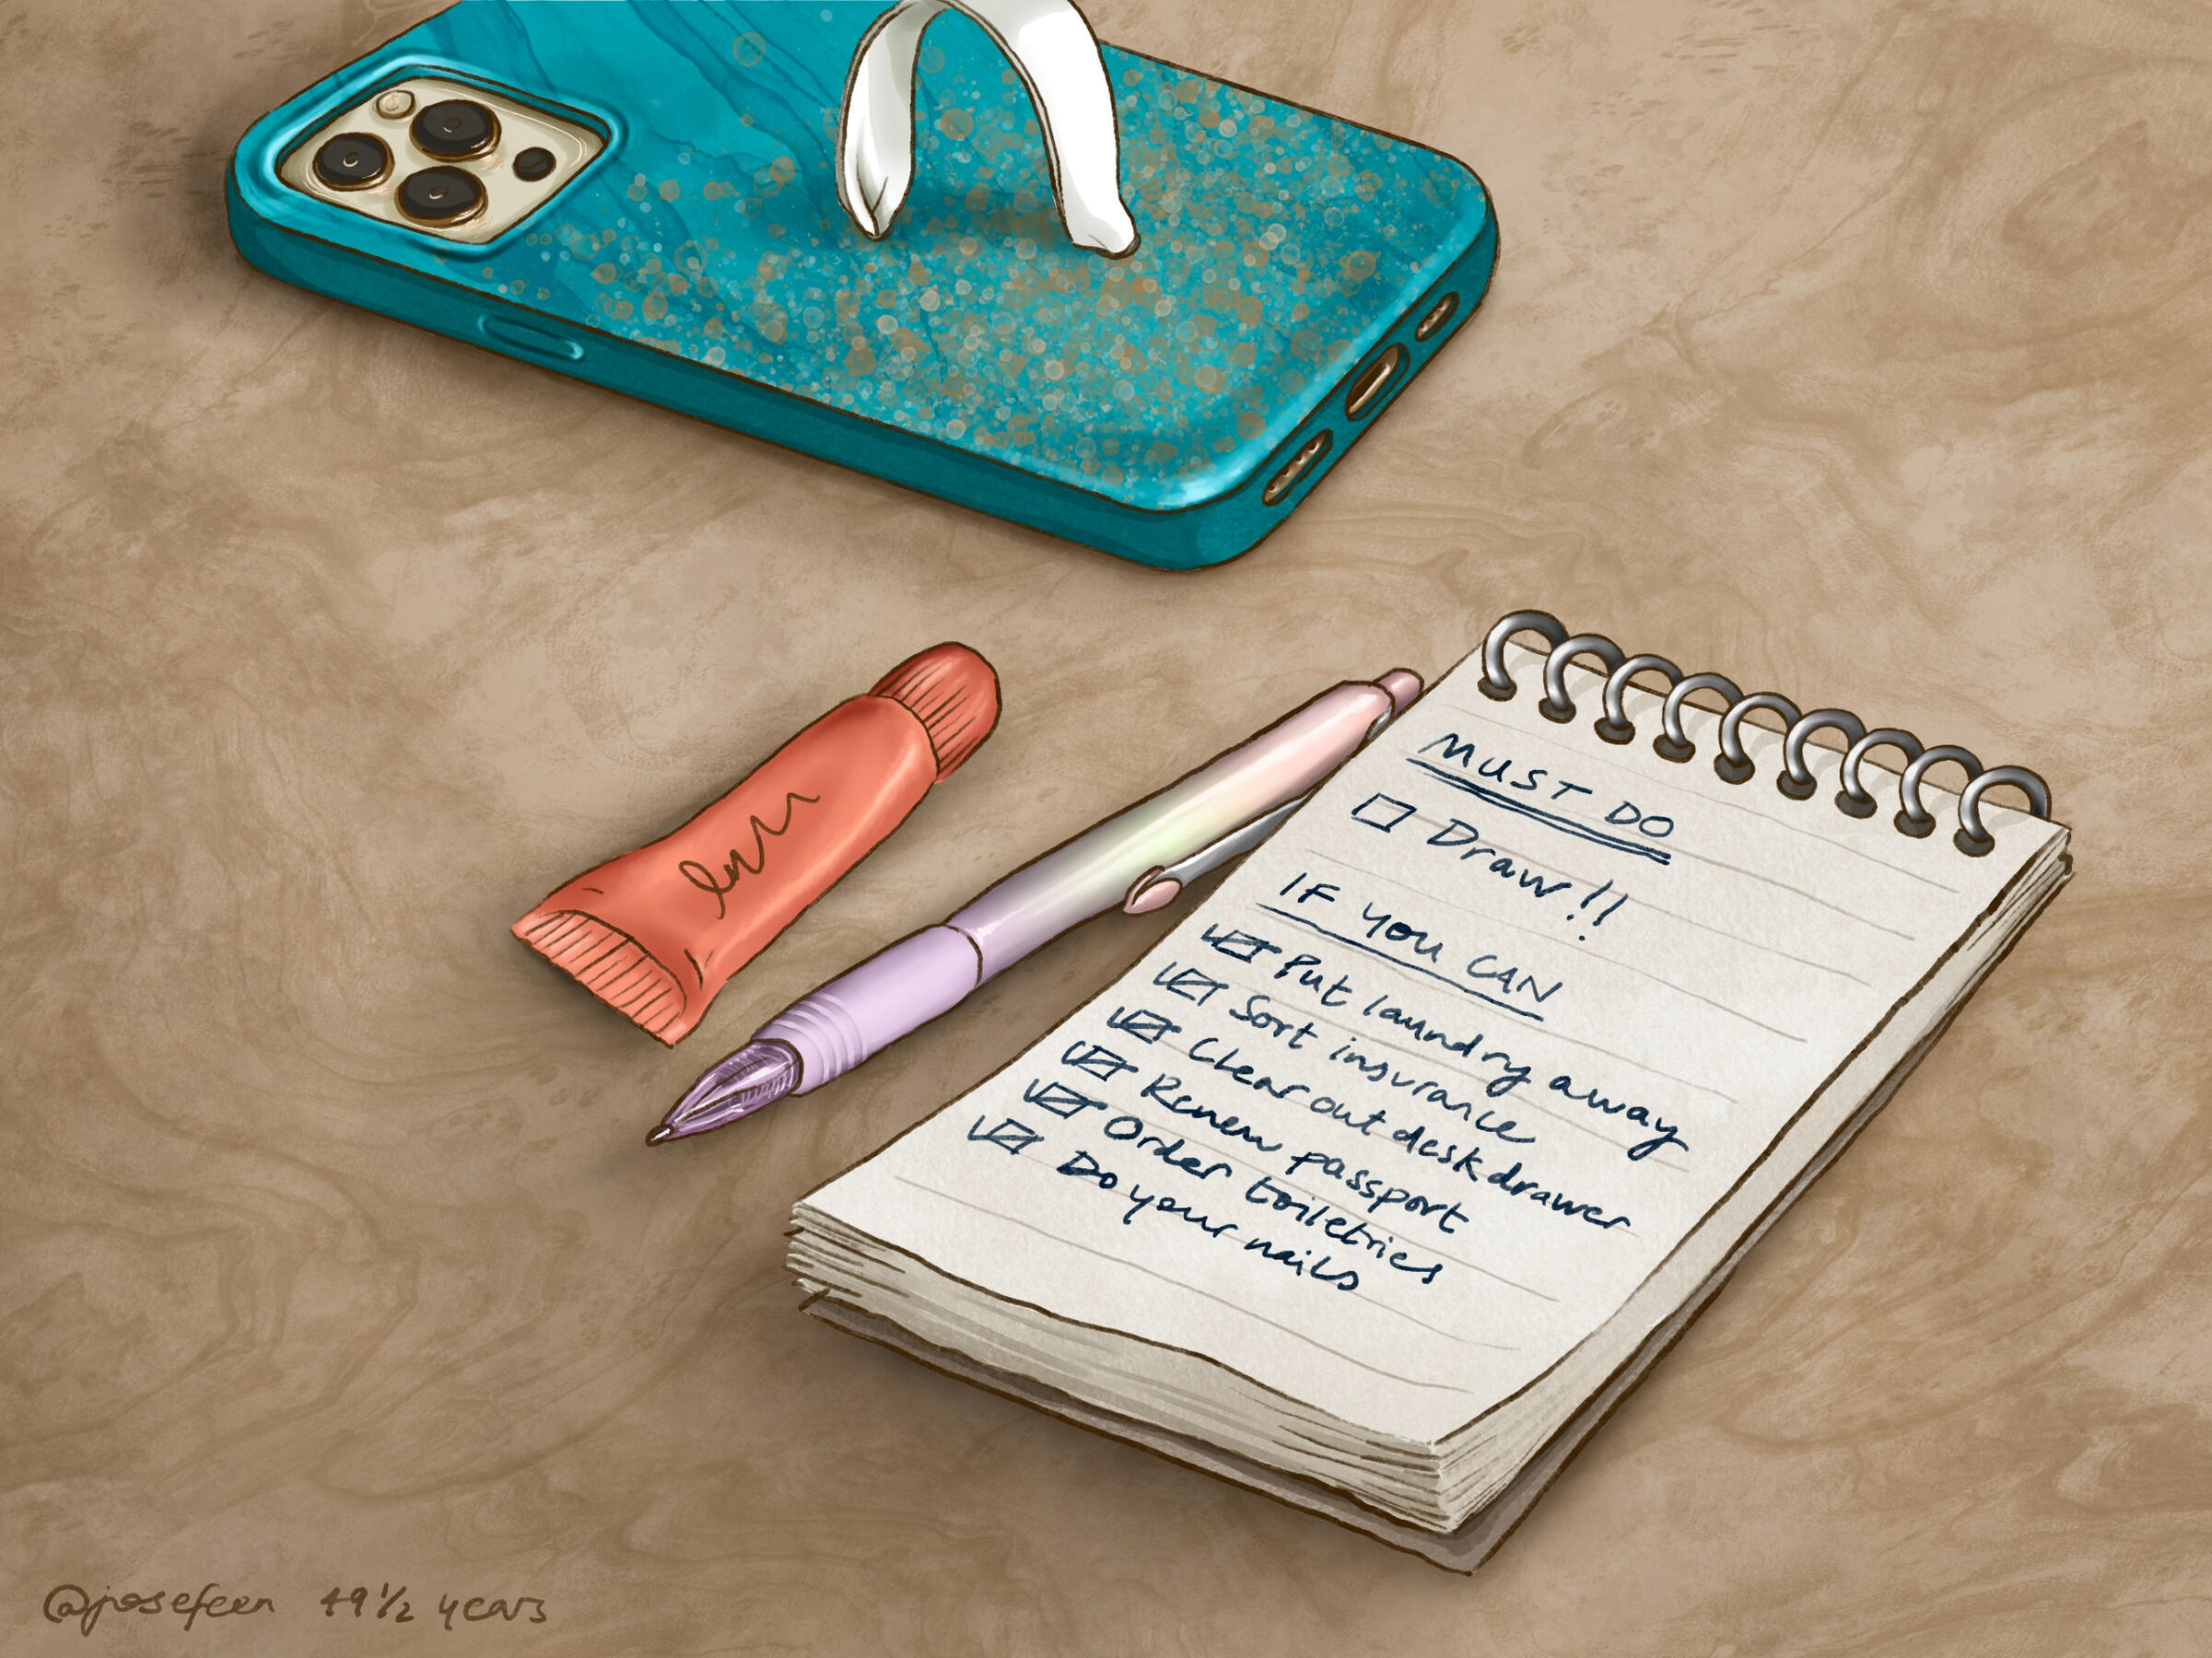 MUST DO
Draw!!
IF YOU CAN
Put laundry away
Sort insurance
Clear out desk drawer
Renew passport
Order toiletries
Do your nails
@josefeen 49 1/2 years